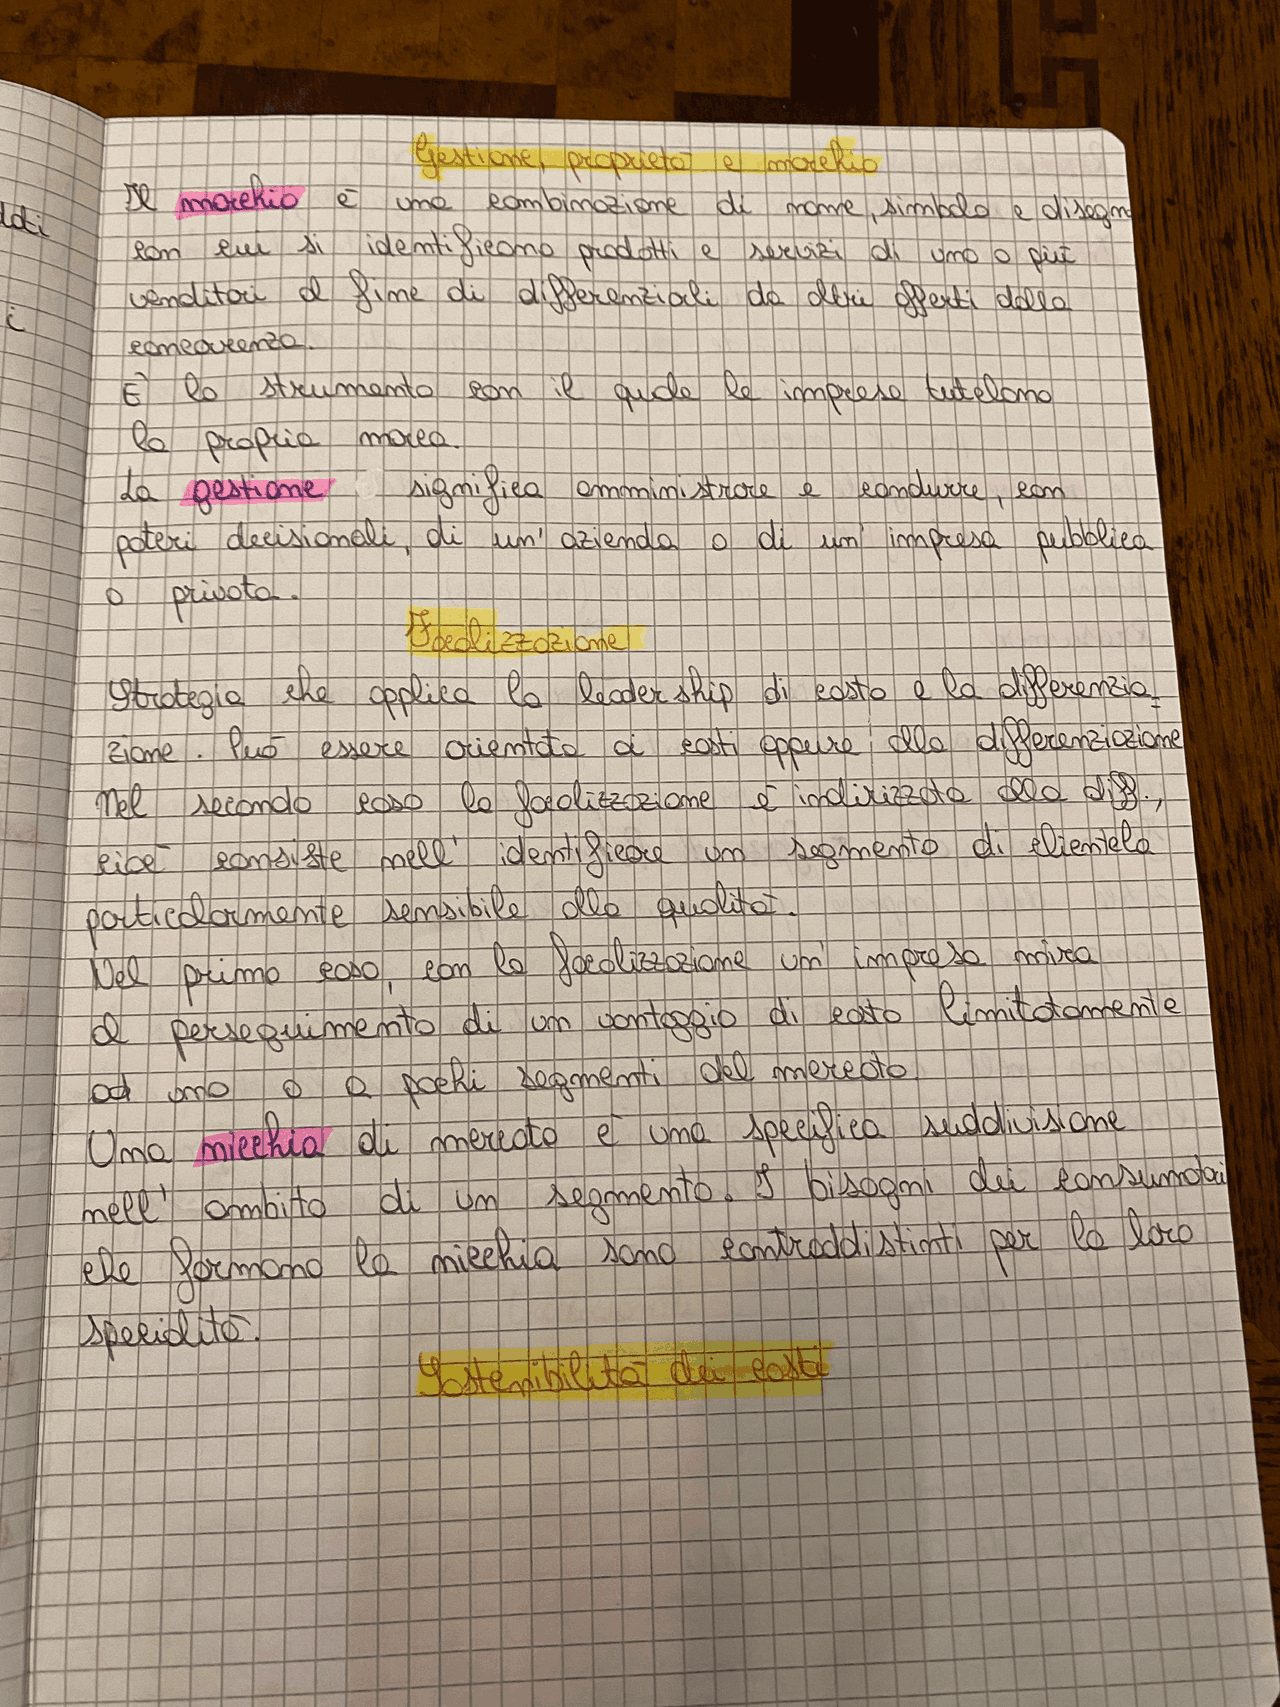 Gestione, proprietà e marchio
Il marchio è una combinazione di nome, simbolo e disegn
con cui si identificano prodotti e servizi di uno o più
venditori al fine di differenziali da altri offerti dalla
concorrenza.
È lo strumento con il quale le imprese tutelano
la propria marca.
La gestione significa amministrare e condurre, con
poteri decisionali, di un' azienda o di un' impresa pubblica
o privata.
Focalizzazione
Strategia che applica la leader ship di costo e la differenzia=
zione. Può essere orientata ai costi oppure alla differenziazione
Nel secondo caso la focalizzazione è indirizzata alla diff.,
cioè consiste nell' identificare un segmento di clientela
particolarmente sensibile alla qualità.
Nel primo caso, con la focalizzazione un' impresa mira
al perseguimento di un vantaggio di costo limitatamente
ad uno o a pochi segmenti del mercato
Una nicchia di mercato è una specifica suddivisione
nell' ambito di un segmento. I bisogni dei consumatori
che formano la nicchia sono contraddistinti per la loro
specialità.
Sostenibilità dei costi